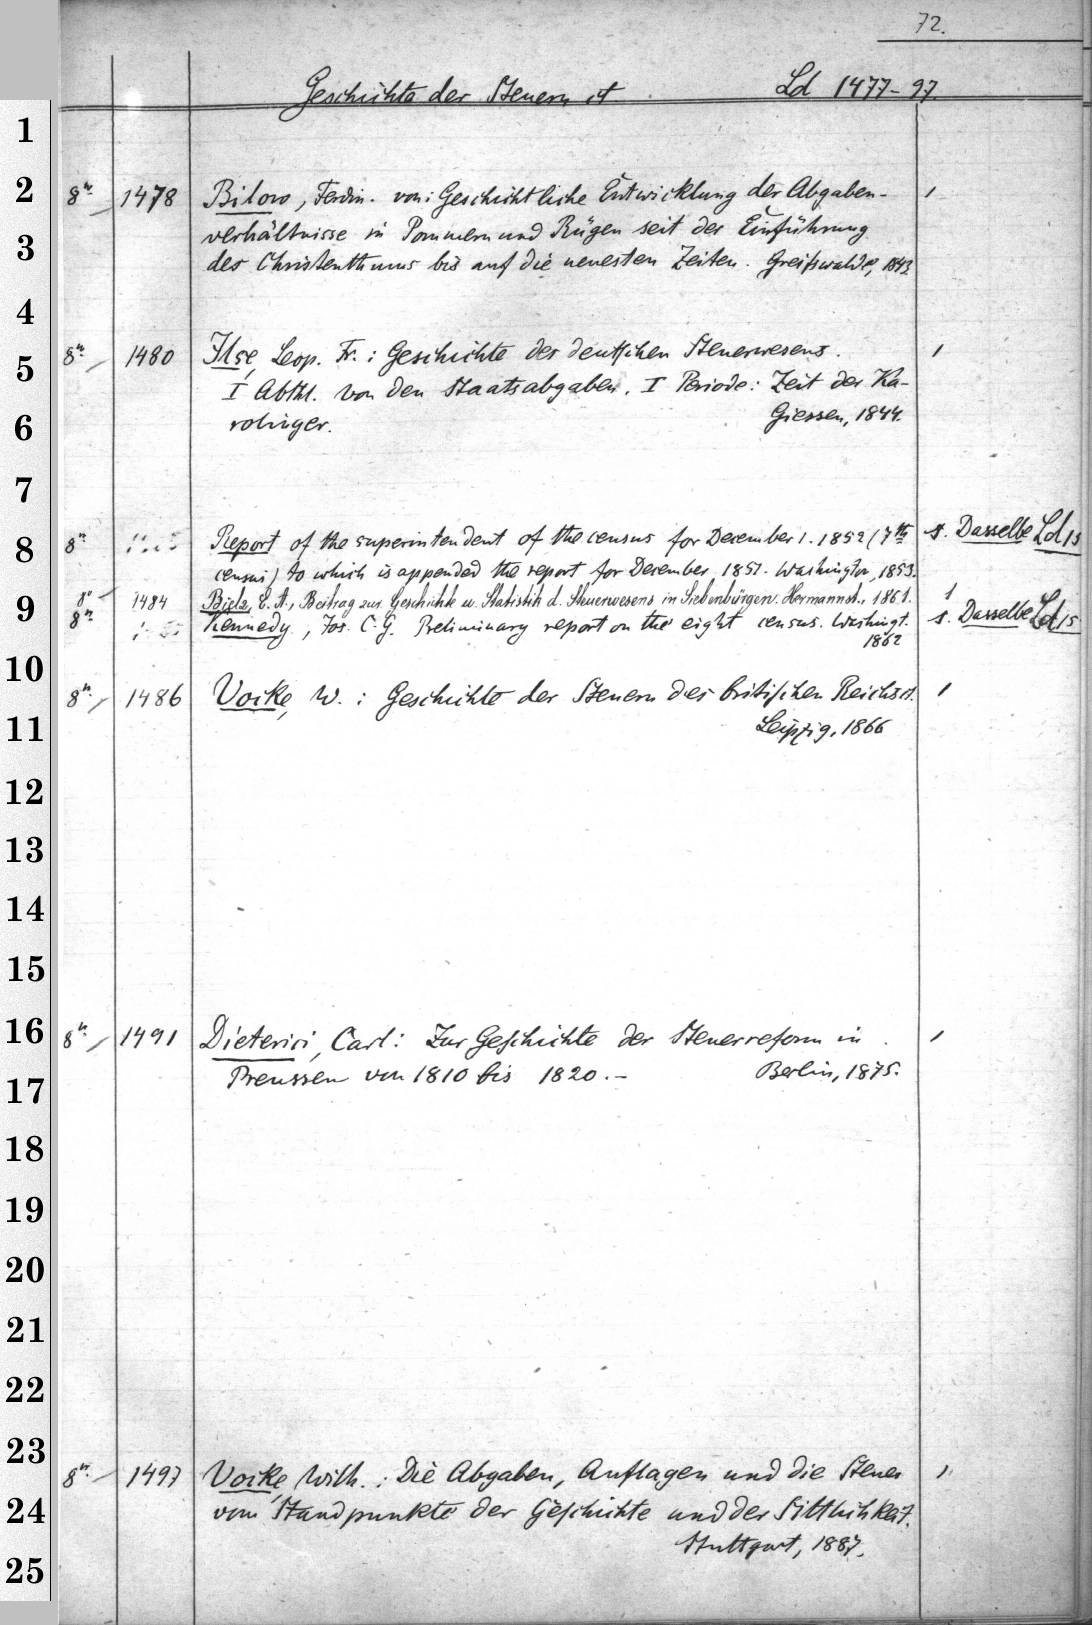 72.
Geschichte der Steuern Ld 1477-97.
1
2 8° 1478 Bilow, Ferdin. von: Geschichtliche Entwicklung der Abgaben- 1
verhältnisse in Pommern und Rügen seit der Einführung
3 des Christenthums bis auf die neuesten Zeiten. Greifswalde, 1843.
4
5 8° 1480 Ilse, Leop. Fr.: Geschichte des deutschen Steuerwesens. 1
I Abthl. Von den Staatsabgaben. I Periode: Zeit der Ka-
6 rolinger. Giessen, 1844.
7
8 8° Report of the superintendent of the census for December 1. 1852 (7th s. Dasselbe Ld 15
census) to which is appended the report for December 1851. Washington, 1853.
9 8° 1484 Bielz, E. A., Beitrag zur Geschichte u. Statistik d. Steuerwesens in Siebenbürgen. Hermannst., 1861. 1
8° Kennedy, Jos. C. G. Preliminary report on the eight census. Washingt. s. Dasselbe Ld 15
1862
10 8° 1486 Vocke, W.: Geschichte der Steuern des britischen Reichs. 1
11 Leipzig, 1866
12
13
14
15
16 8° 1491 Dieterici, Carl: Zur Geschichte der Steuerreform in 1
17 Preussen von 1810 bis 1820.- Berlin, 1875.
18
19
20
21
22
23 8° 1497 Vocke, Wilh.: Die Abgaben, Auflagen und die Steuer 1
24 vom Standpunkte der Geschichte und der Sittlichkeit.
Stuttgart, 1887.
25